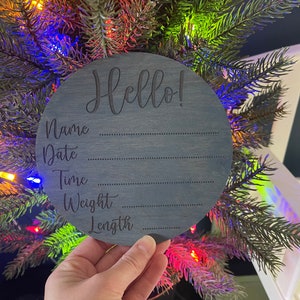 Hello!
Name
Date
Time
Weight
Length